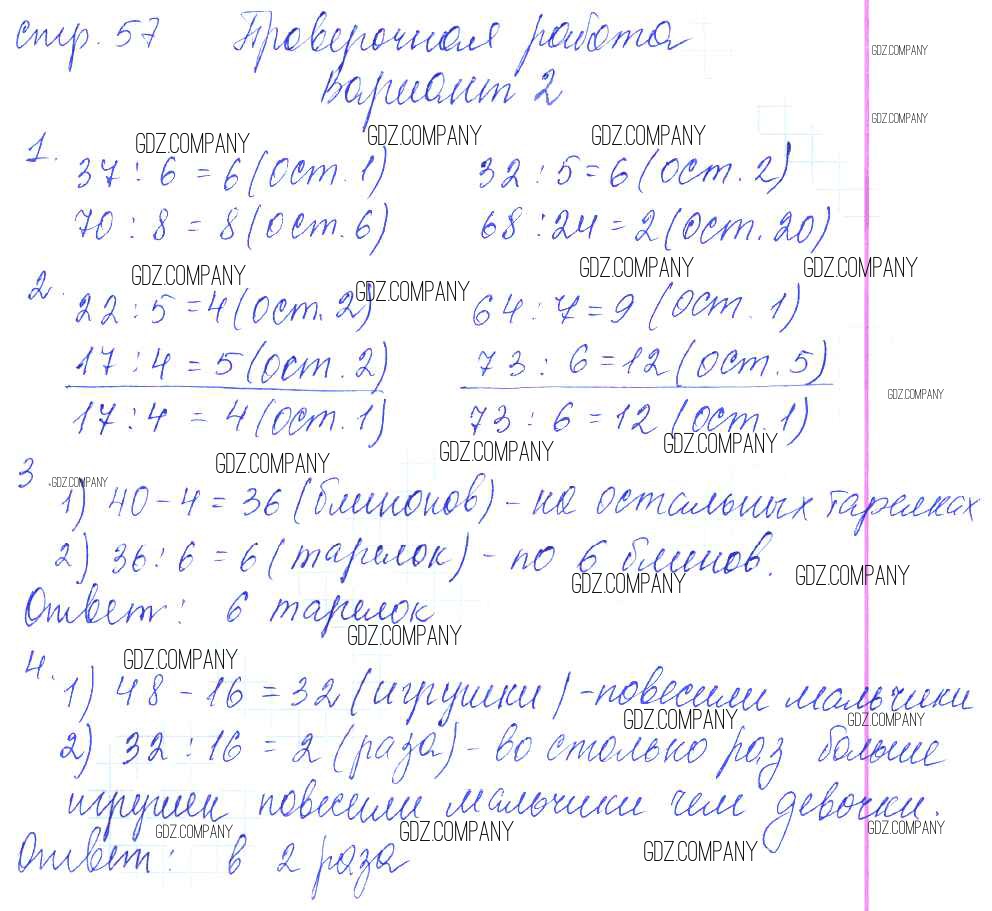 стр. 57 Проверочная работа
Вариант 2
GDZ.COMPANY
GDZ.COMPANY
GDZ.COMPANY GDZ.COMPANY GDZ.COMPANY
1. 37 : 6 = 6 (ост. 1) 32 : 5 = 6 (ост. 2)
70 : 8 = 8 (ост. 6) 68 : 24 = 2 (ост. 20)
GDZ.COMPANY GDZ.COMPANY GDZ.COMPANY GDZ.COMPANY
2. 22 : 5 = 4 (ост. 2) 64 : 7 = 9 (ост. 1)
17 : 4 = 5 (ост. 2) 73 : 6 = 12 (ост. 5)
GDZ.COMPANY
17 : 4 = 4 (ост. 1) 73 : 6 = 12 (ост. 1)
GDZ.COMPANY GDZ.COMPANY GDZ.COMPANY
3 GDZ.COMPANY
1) 40 - 4 = 36 (блинонов) - на остальных тарелках
2) 36 : 6 = 6 (тарелок) - по 6 блинов.
GDZ.COMPANY GDZ.COMPANY
Ответ: 6 тарелок
GDZ.COMPANY
4. GDZ.COMPANY
1) 48 - 16 = 32 (игрушки) - повесили мальчики
GDZ.COMPANY GDZ.COMPANY
2) 32 : 16 = 2 (раза) - во столько раз больше
игрушек повесили мальчики чем девочки.
GDZ.COMPANY GDZ.COMPANY GDZ.COMPANY
Ответ: в 2 раза
GDZ.COMPANY